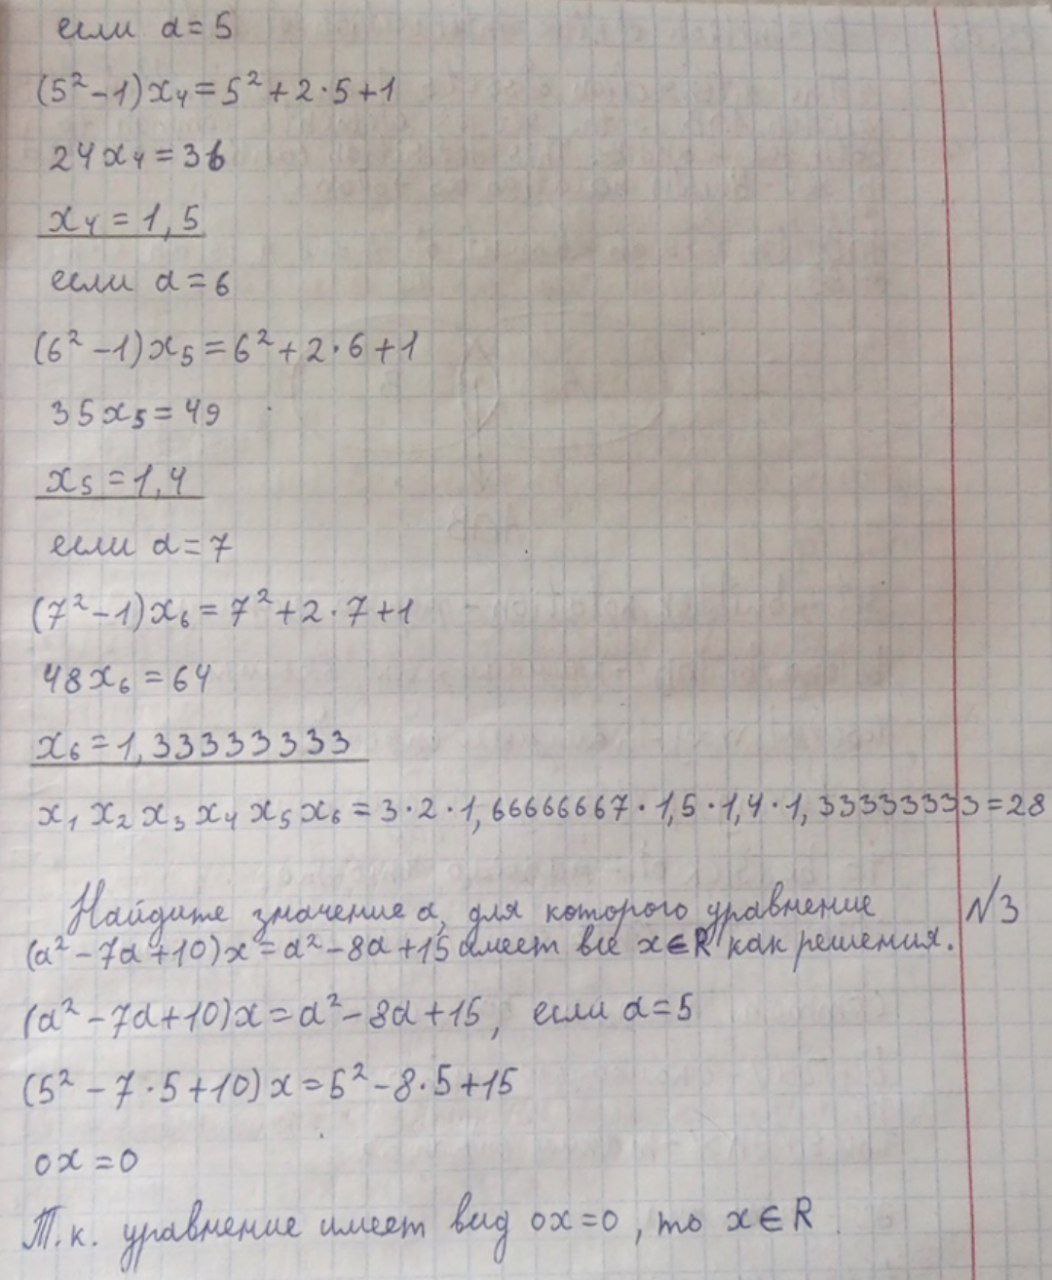 если a=5
(5²-1)x₄=5²+2·5+1
24x₄=36
x₄=1,5
если a=6
(6²-1)x₅=6²+2·6+1
35x₅=49
x₅=1,4
если a=7
(7²-1)x₆=7²+2·7+1
48x₆=64
x₆=1,33333333
x₁ x₂ x₃ x₄ x₅ x₆=3·2·1,66666667·1,5·1,4·1,33333333=28
Найдите значение a, для которого уравнение №3
(a²-7a+10)x=a²-8a+15 имеет все x∈R как решения.
(a²-7a+10)x=a²-8a+15, если a=5
(5²-7·5+10)x=5²-8·5+15
0x=0
Т.к. уравнение имеет вид 0x=0, то x∈R